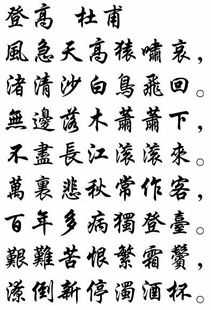 登高 杜甫
風急天高猿嘯哀，
渚清沙白鳥飛回。
無邊落木蕭蕭下，
不盡長江滾滾來。
萬裏悲秋常作客，
百年多病獨登臺。
艱難苦恨繁霜鬢，
潦倒新停濁酒杯。